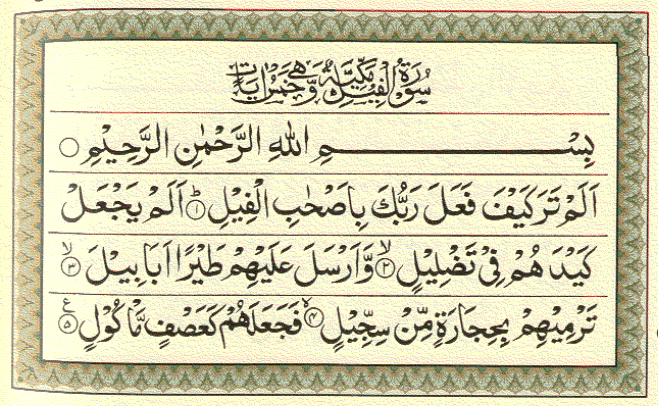 سُوْرَةُ الْفِيْلِ مَكِّيَّةٌ وَّهِيَ خَمْسُ اٰيَاتٍ
بِسْمِ اللهِ الرَّحْمٰنِ الرَّحِيْمِ ○
اَلَمْ تَرَ كَيْفَ فَعَلَ رَبُّكَ بِاَصْحٰبِ الْفِيْلِ ؕ﴿۱﴾ اَلَمْ يَجْعَلْ
كَيْدَهُمْ فِيْ تَضْلِيْلٍ ۙ﴿۲﴾ وَّاَرْسَلَ عَلَيْهِمْ طَيْرًا اَبَابِيْلَ ۙ﴿۳﴾
تَرْمِيْهِمْ بِحِجَارَةٍ مِّنْ سِجِّيْلٍ ﴿۴﴾ فَجَعَلَهُمْ كَعَصْفٍ مَّاْكُوْلٍ ﴿۵﴾ ع